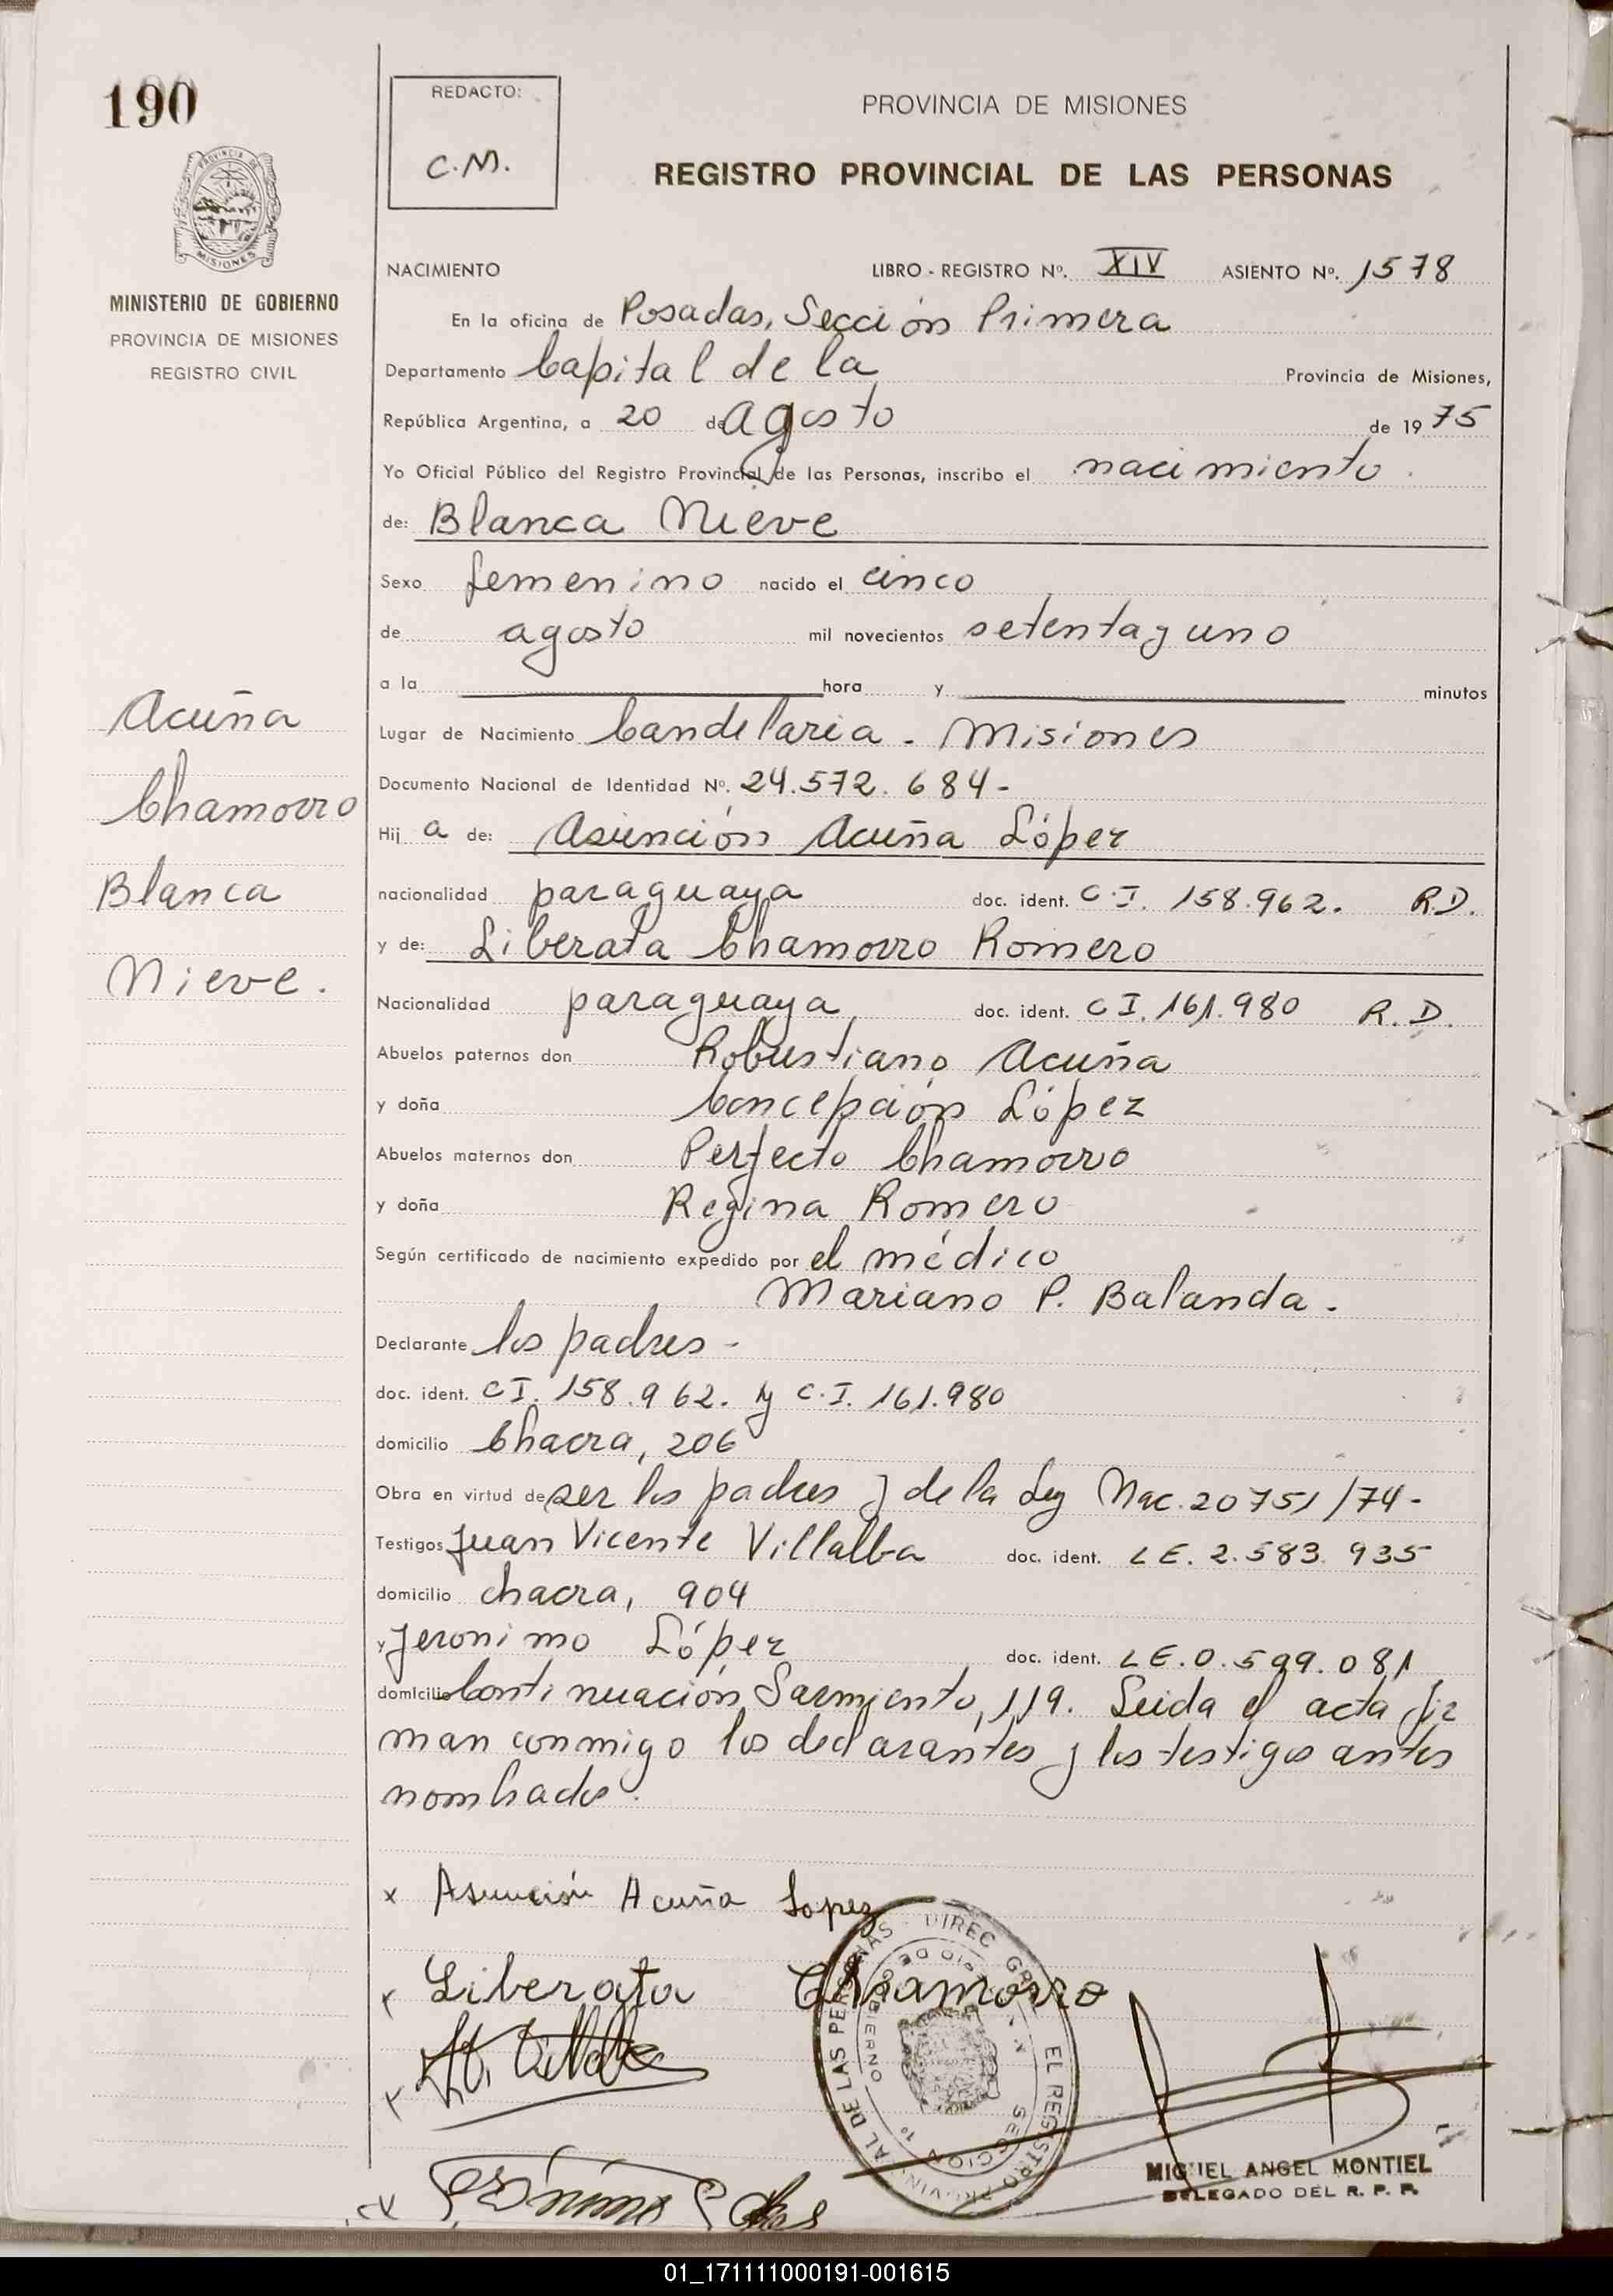 190
PROVINCIA DE
MISIONES
MINISTERIO DE GOBIERNO
PROVINCIA DE MISIONES
REGISTRO CIVIL
REDACTO:
C.M.
PROVINCIA DE MISIONES
REGISTRO PROVINCIAL DE LAS PERSONAS
NACIMIENTO LIBRO - REGISTRO Nº. XIV ASIENTO Nº. 1578
En la oficina de Posadas, Sección Primera
Departamento Capital de la Provincia de Misiones,
República Argentina, a 20 de Agosto de 1975
Yo Oficial Público del Registro Provincial de las Personas, inscribo el nacimiento.
de: Blanca Nieve
Sexo femenino nacido el cinco
de agosto mil novecientos setenta y uno
a la hora y minutos
Acuña
Chamorro
Blanca
Nieve.
Lugar de Nacimiento Candelaria - Misiones
Documento Nacional de Identidad Nº. 24.572.684-
Hij a de: Asunción Acuña López
nacionalidad paraguaya doc. ident. C.I. 158.962. R.D.
y de: Liberata Chamorro Romero
Nacionalidad paraguaya doc. ident. C I. 161.980 R.D.
Abuelos paternos don Robustiano Acuña
y doña Concepción López
Abuelos maternos don Perfecto Chamorro
y doña Regina Romero
Según certificado de nacimiento expedido por el médico
Mariano P. Balanda.
Declarante los padres -
doc. ident. C I. 158.962. y C.I. 161.980
domicilio Chacra, 206
Obra en virtud de ser los padres y de la Ley Nac. 20751/74-
Testigos Juan Vicente Villalba doc. ident. L E. 2.583.935
domicilio chacra, 904
y Jeronimo López doc. ident. L E. 0.599.081
domicilio Continuación Sarmiento, 119. Leida el acta fir
man conmigo los declarantes y los testigos antes
nombrados.
x Asunción Acuña Lopez
x Liberata Chamorro
x
x
DIREC. GRAL. EL REGISTRO PROVINCIAL DE LAS PERSONAS
SECCION 1º
MIGUEL ANGEL MONTIEL
DELEGADO DEL R. P. P.
01_171111000191-001615